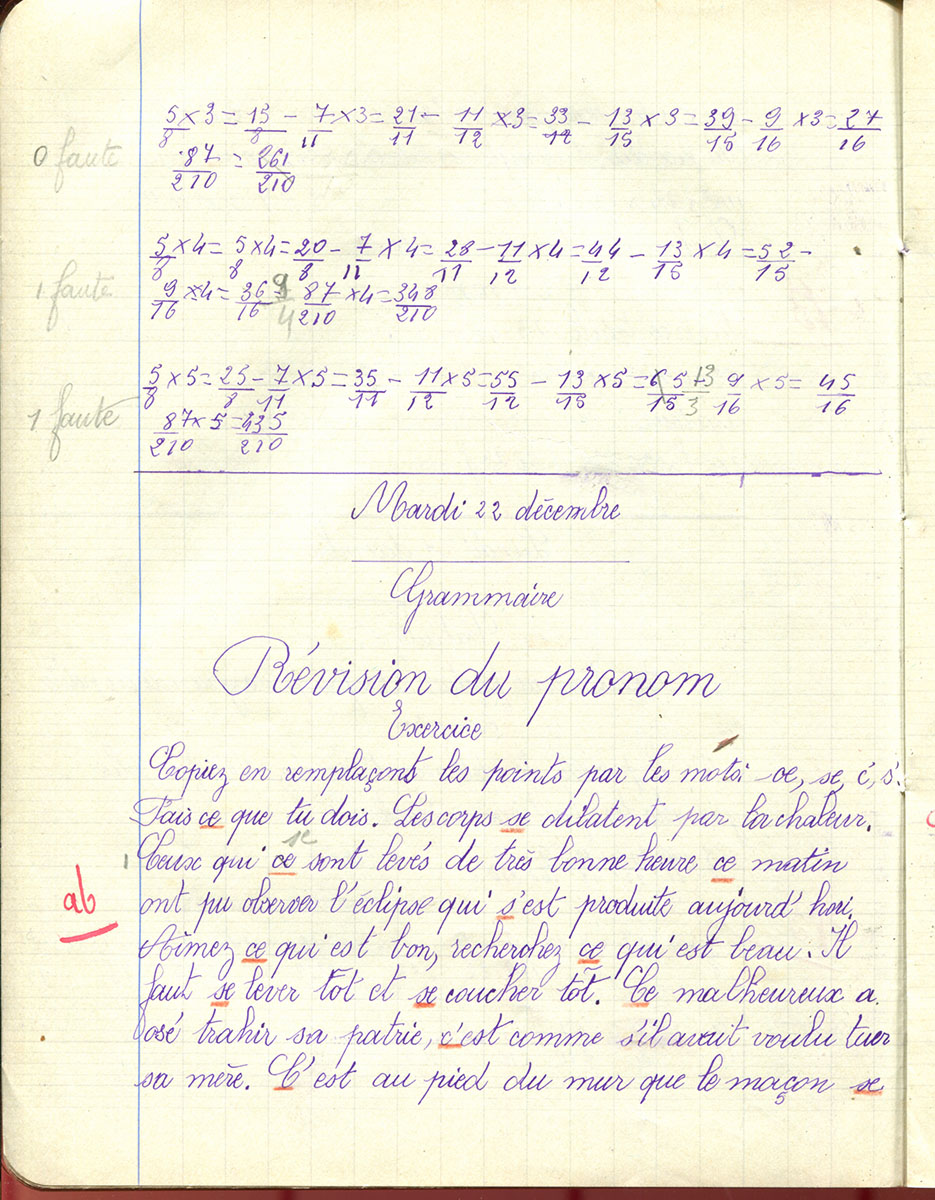 5/8 × 3 = 15/8 - 7/11 × 3 = 21/11 - 11/12 × 3 = 33/12 - 13/15 × 3 = 39/15 - 9/16 × 3 = 27/16
0 faute
87/210 = 261/210
5/8 × 4 = 5/8 × 4 = 20/8 - 7/11 × 4 = 28/11 - 11/12 × 4 = 44/12 - 13/15 × 4 = 52/15 -
1 faute
9/16 × 4 = 36/16 9/4 87/210 × 4 = 348/210
5/8 × 5 = 25/8 - 7/11 × 5 = 35/11 - 11/12 × 5 = 55/12 - 13/15 × 5 = 65/15 13/3 9/16 × 5 = 45/16
1 faute
87/210 × 5 = 435/210
Mardi 22 décembre
Grammaire
Révision du pronom
Exercice
Copiez en remplaçants les points par les mots: ce, se, c', s'.
Fais ce que tu dois. Les corps se dilatent par la chaleur.
se
Ceux qui ce sont levés de très bonne heure ce matin
ab
ont pu observer l'éclipse qui s'est produite aujourd'hui.
Aimez ce qui est bon, recherchez ce qui est beau. Il
faut se lever tôt et se coucher tôt. Ce malheureux a
osé trahir sa patrie, c'est comme s'il avait voulu tuer
sa mère. C'est au pied du mur que le maçon se